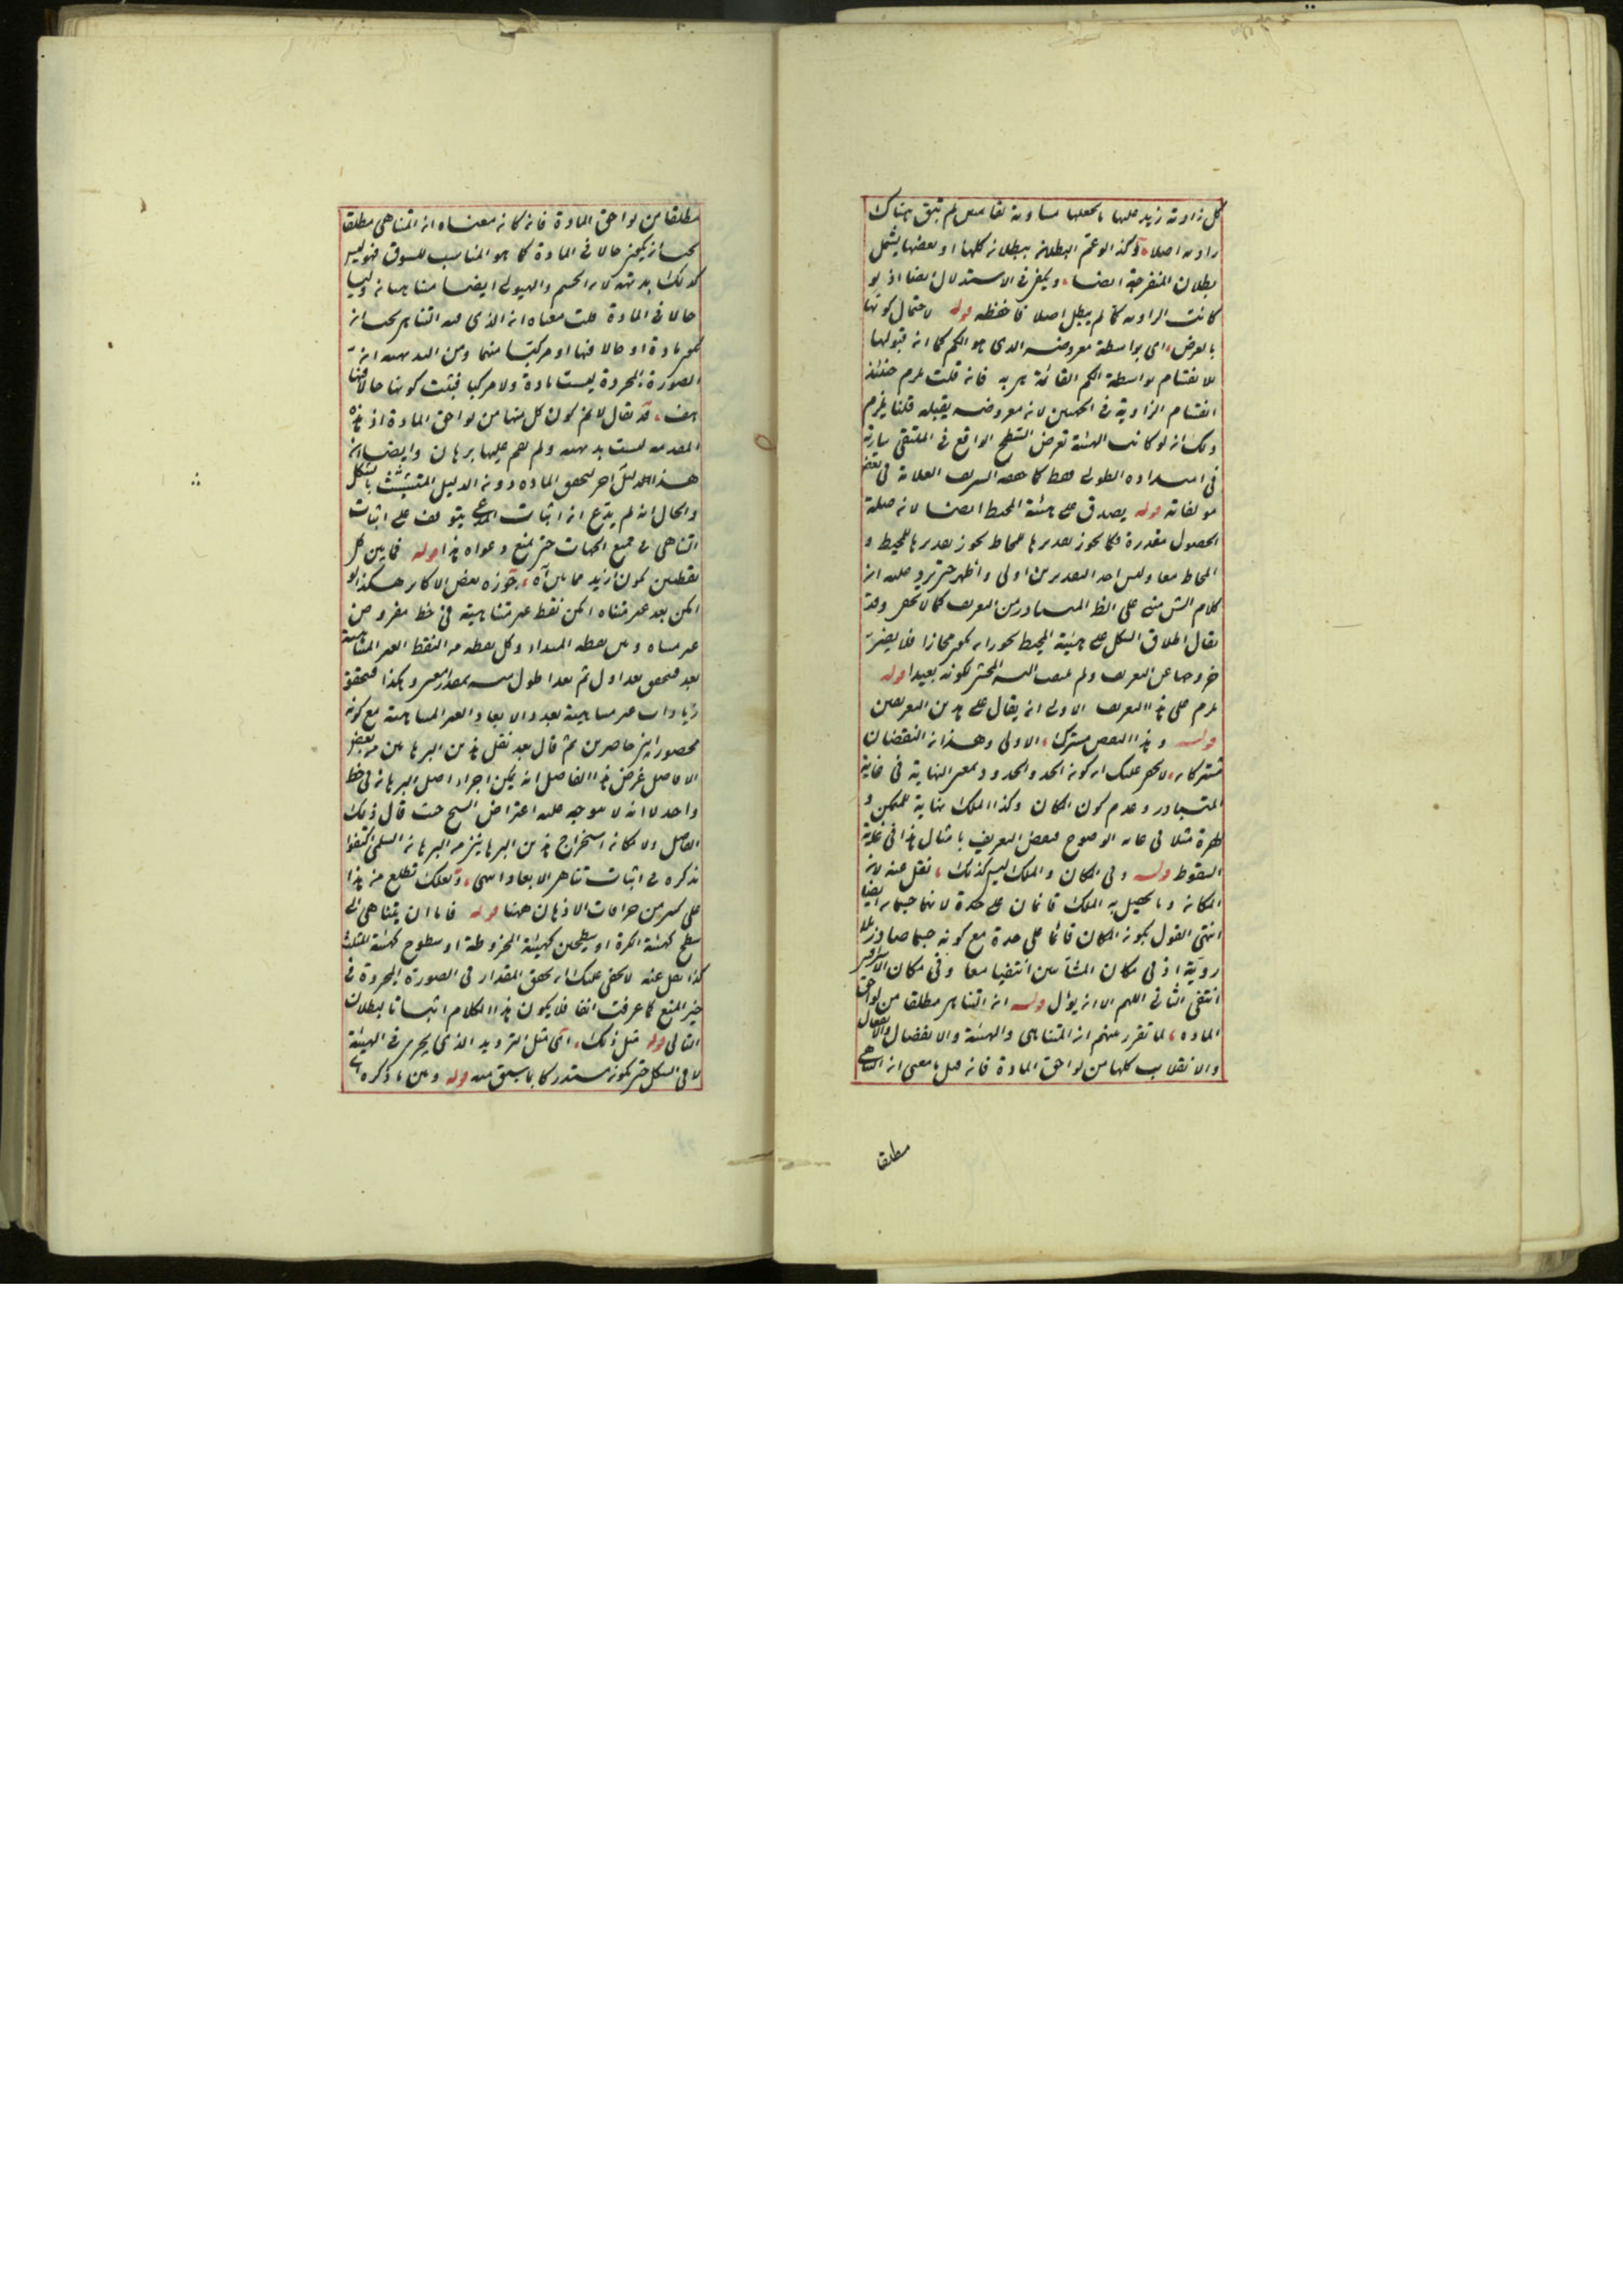 كل زاوية زيد عليها ما يجعلها مساوية لقائمتين لم تبق هناك
زاوية اصلا وكذا لو عمم البطلان ببطلان كلها او بعضها يشمل
بطلان المنفرجة ايضا ويكفى فى الاستدلال ايضا اذ لو
كانت الزاوية كما لم يبطل اصلا فاحفظه قوله لاحتمال كونها
بالعرض اى بواسطة معروضه الذى هو الكم كما ان قبولها
للانقسام بواسطة الكم القائمة هى به فان قلت يلزم حينئذ
انقسام الزاوية فى الجهتين لان معروضه يقبله قلنا يلزم
ذلك ان لو كانت الهيئة تعرض السطح الواقع فى الملتقى سارية
فى امتداده الطولى فقط كما حققه الشريف العلامة فى بعض
مؤلفاته قوله يصدق على هيئة المحيط ايضا لان صلة
الحصول مقدرة فكما يجوز تقديرها للمحاط يجوز تقديرها للمحيط و
المحاط معا وليس احد التقديرين اولى واظهر حتى يرد عليه ان
كلام الش مبنى على الظ المتبادر من التعريف كما لا يخفى وقد
يقال اطلاق الشكل على هيئة المحيط يجوز ان يكون مجازا فلا يضر
خروجها عن التعريف ولم يلتفت اليه المحشى لكونه بعيدا قوله
يلزم على هذا التعريف الاولى ان يقال على هذين التعريفين
قوله وهذا النقض مشترك الاولى وهذان النقضان
مشتركان لا يخفى عليك ان كون الحد والحدود بمعنى النهاية فى غاية
المتبادر وعدم كون المكان وكذا الملك نهاية للمتمكن و
للهرة مثلا فى غاية الوضوح فنقض التعريف بامثال هذا فى غاية
السقوط قوله وفى المكان والملك ليس كذلك نقل عنه لان
المكان وما يحصل به الملك قائمان على حدة لانهما جسمان ايضا
انتهى القول بكون المكان قائما على حدة مع كونه جسما صادر عن
روية اذ فى مكان المشائين انتفيا معا وفى مكان الاشراقيين
انتفى الثانى اللهم الا ان يؤل قوله ان التناهى مطلقا من لواحق
المادة لما تقرر عندهم ان التناهى والهيئة والانفصال والاتصال
والانقلاب كلها من لواحق المادة فان قيل ما معنى ان التناهى
مطلقا
مطلقا من لواحق المادة فان كان معناه ان المتناهى مطلقا
يجب ان يكون حالا فى المادة كما هو المناسب للسوق فهو ليس
كذلك بديهة لان الجسم والهيولى ايضا متناهيان وليسا
حالا فى المادة قلت معناه ان الذى فيه التناهى يجب ان
يكون مادة او حالا فيها او مركبا منهما ومن البديهة ان
الصورة المجردة ليست مادة ولا مركبا فثبت كونها حالا فيها
هف قد يقال لانم كون كل منها من لواحق المادة اذ هذه
المقدمة ليست بديهية ولم يقم عليها برهان وايضا ان
هذا دليل آخر لتحقق المادة دون الدليل المتشبث بالشكل
والحال انه لم يدع ان اثبات المدعى يتوقف على اثبات
التناهى فى جميع الجهات حتى يمنع دعواه هذا قوله فما بين كل
نقطتين يكون ازيد مما بين آه جوزه بعض الاكابر هكذا لو
امكن بعد غير متناه امكن نقط غير متناهية فى خط مفروض
غير متناه وبين نقطة المبدا وكل نقطة من النقط الغير المتناهية
بعد فيتحقق بعد اول ثم بعد اطول منه بمقدار معين وهكذا فيتحقق
زيادات غير متناهية بعدد الابعاد الغير المتناهية مع كونه
محصورا بين حاصرين ثم قال بعد نقل هذين البرهانين من بعض
الافاضل غرض هذا الفاضل انه يمكن اجراء اصل البرهان فى خط
واحد لا انه لا يتوجه عليه اعتراض الشيخ حيث قال ذلك
الفاضل ولامكان استخراج هذين البرهانين من البرهان السلمى اكتفوا
بذكره فى اثبات تناهى الابعاد انتهى ولعلك تطلع من هذا
على كثير من خرافات الاذهان ههنا قوله فاما ان يتناهى الى
سطح كهيئة الكرة او سطحين كهيئة المخروطة او سطوح كهيئة المثلث
كذا نقل عنه لا يخفى عليك ان تحقق المقدار فى الصورة المجردة فى
حيز المنع كما عرفت انفا فلا يكون هذا الكلام اثباتا لبطلان
التالى قوله مثل ذلك اى مثل الترديد الذى يجرى فى الهيئة
لا فى الشكل حتى يكون مستدركا بما سبق منه قوله وبين ما ذكره